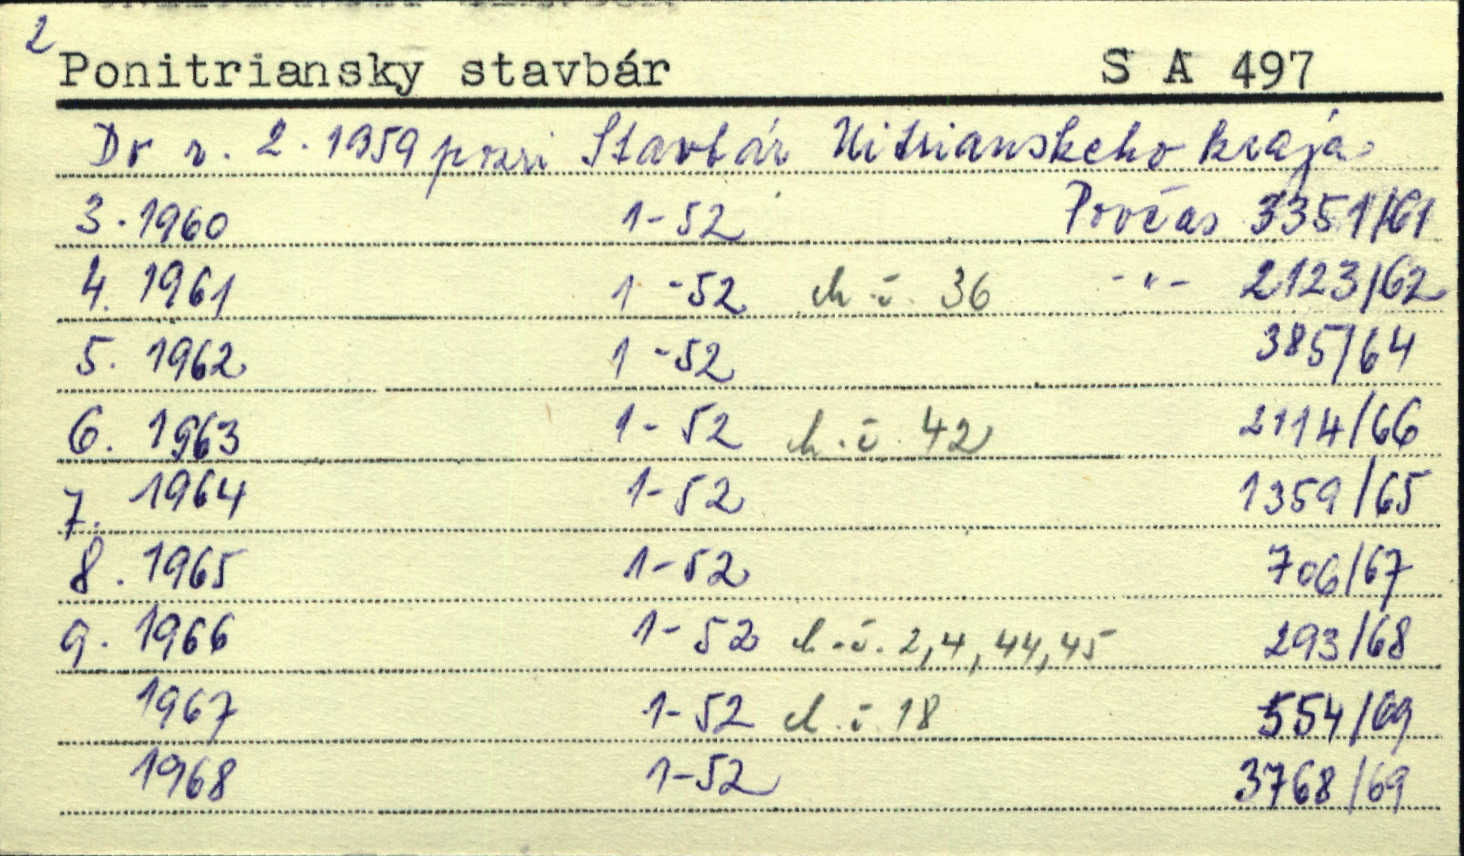 2
Ponitriansky stavbár S A 497
Do r. 2. 1959 pozri Stavbár Nitrianskeho kraja
3. 1960 1-52 Povčas 3351/61
4. 1961 1-52 ch. č. 36 -"- 2123/62
5. 1962 1-52 385/64
6. 1963 1-52 ch. č. 42 2114/66
7. 1964 1-52 1359/65
8. 1965 1-52 706/67
9. 1966 1-52 ch. č. 2, 4, 44, 45 293/68
1967 1-52 ch. č. 18 554/69
1968 1-52 3768/69